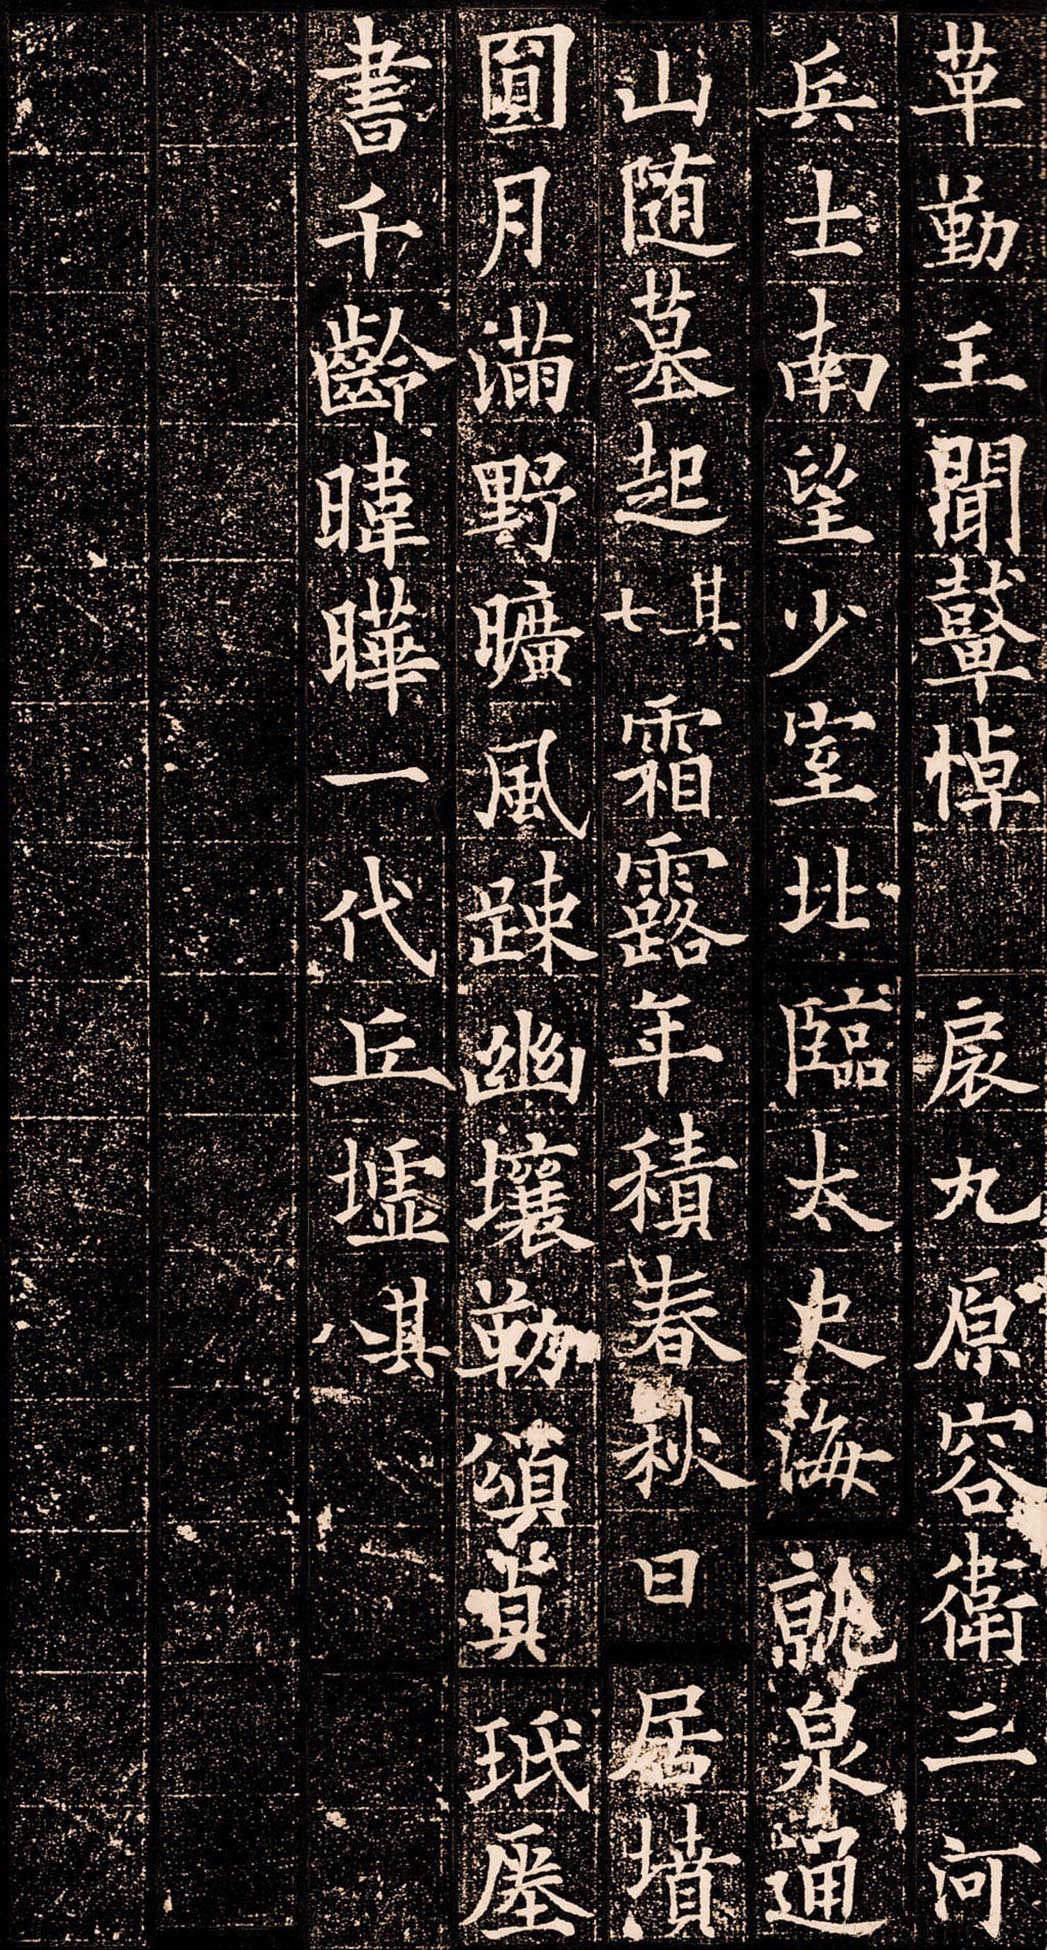 革勤王聞鼙悼扆九原容衛三河
兵士南望少室北臨太史海就泉通
山随墓起其七霜露年積春秋日居墳
圓月滿野曠風踈幽壤勒頌貞珉瘞
書千齡暐曄一代丘墟其八